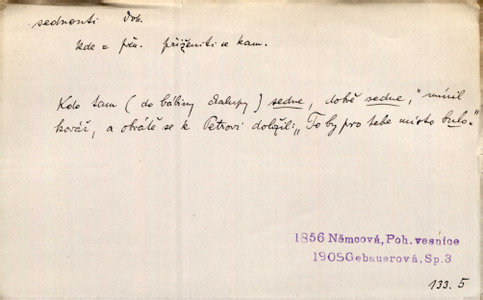 sednouti Dok.
zde = přen. přiženiti se kam.
Kdo tam (do bábiny chalupy) sedne, dobře sedne," mínil
kovář, a obrátě se k Petrovi doložil: „To by pro tebe místo bylo."
1856 Němcová, Poh. vesnice
1908 Gebauerová, Sp. 3
133. 5